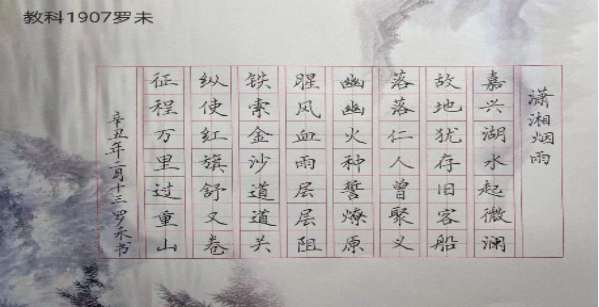 教科1907罗未
潇湘烟雨
嘉兴湖水起微澜
故地犹存旧客船
落落仁人曾聚义
幽幽火种誓燎原
腥风血雨层层阻
铁索金沙道道关
纵使红旗舒又卷
征程万里过重山
辛丑年二月十三罗未书